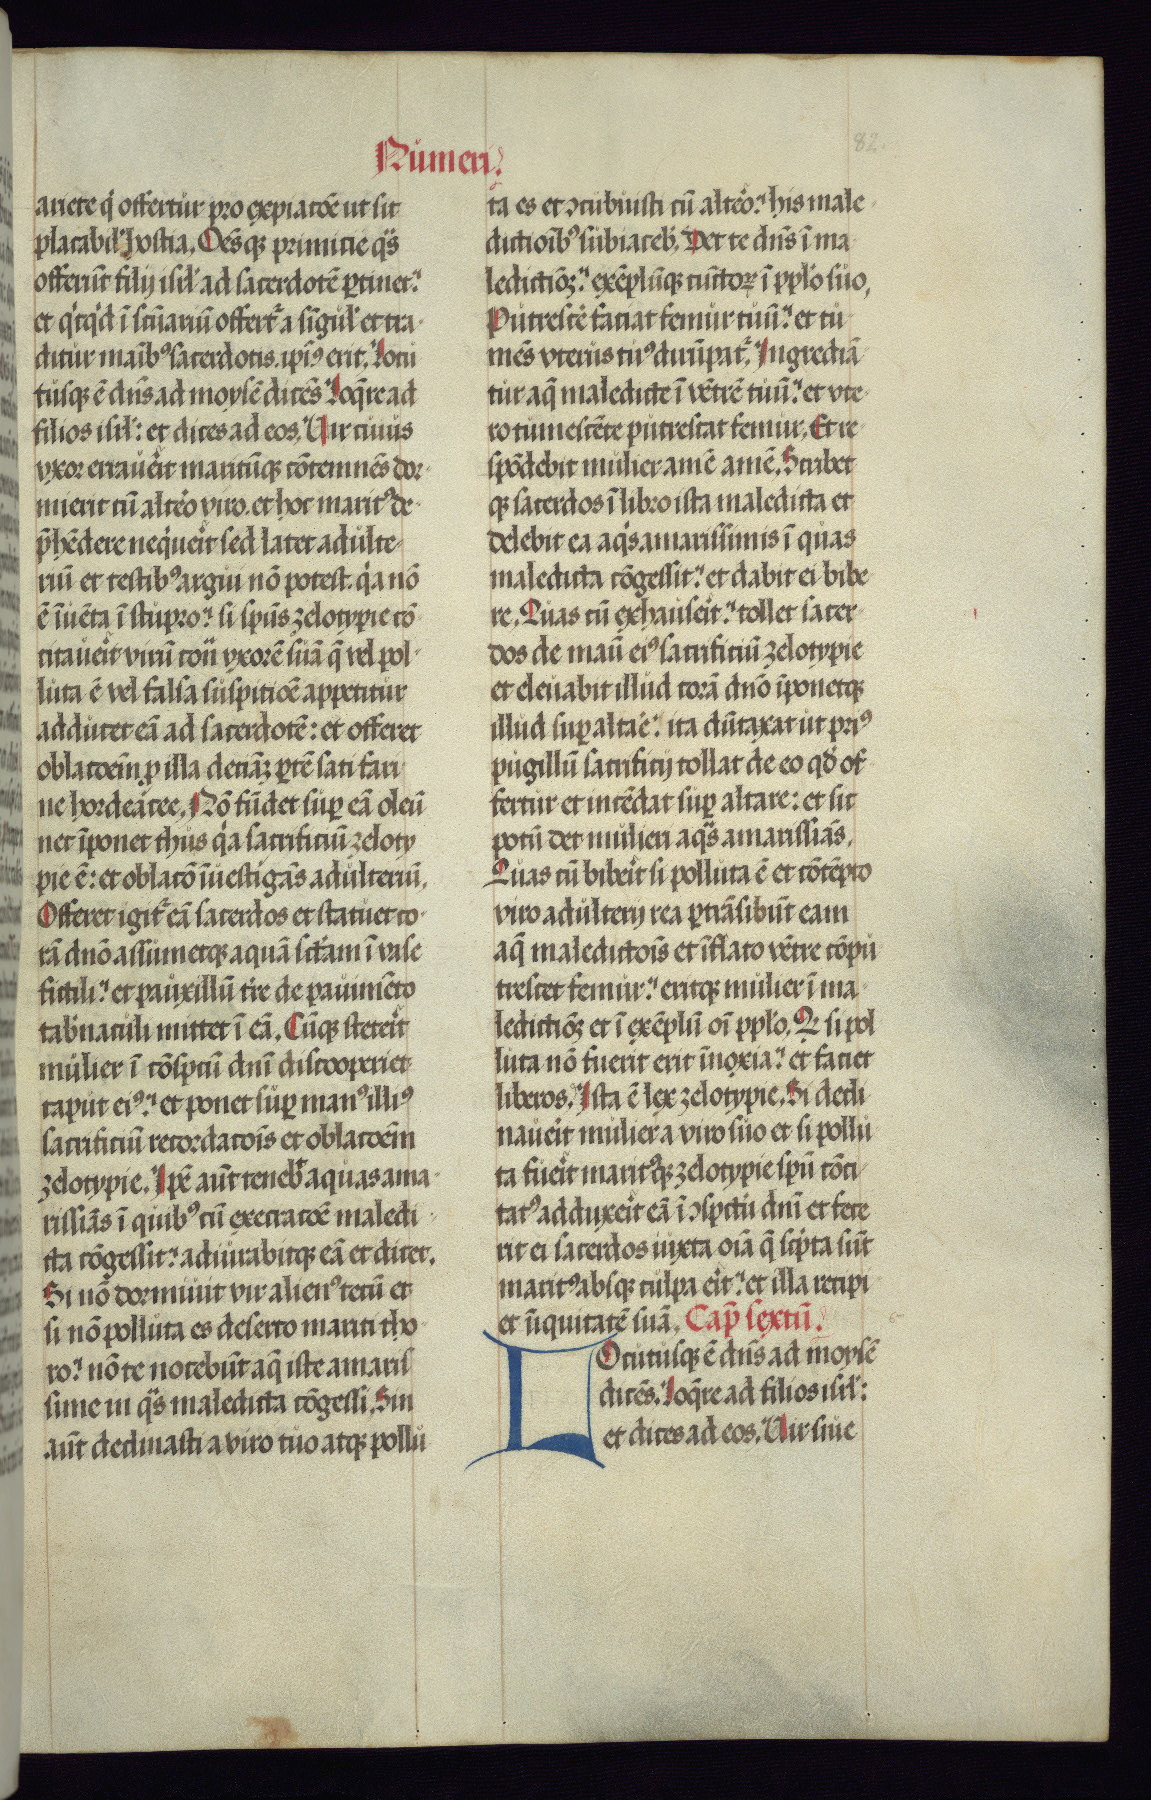 Numeri.
82.
ariete q̇ offertur pro expiatōe ut sit
placabil' hostia. Oēsq; primicie q̈s
offerūt filij isrl' ad sacerdotē ꝑtinet:
et q̇cq̇d ī scūariū offert᷑ a singul' et tra
ditur maībꝰ sacerdotis. ipiꝰ erit. Locu
tusq; ē dn̄s ad moysē dicēs. Loq̄re ad
filios isrl': et dices ad eos. Uir cuius
vxor erraue᷑it maritūq; cōtemnēs dor
mierit cū alte᷑o viro. et hoc maritꝰ de
p̄hēdere neque᷑it sed latet adulte
riū et testibꝰ argui nō potest. q̇a nō
ē īuēta ī stupro: si spūs zelotypie cō
citaue᷑it virū cout̄ vxorē suā q̄ vel pol
luta ē vel falsa suspitiōe appetitur
adducet eā ad sacerdotē: et offeret
oblatoēm ꝓ illa deciāꝫ ꝑtē sati fari
ne hordeacee. Nō fūdet suꝑ eā oleū
nec īponet thus q̇a sacrificiū zeloty
pie ē: et oblatō īuestigās adulteriū.
Offeret igit᷑ eā sacerdos et statuet co
rā dn̄o assumetq; aquā sc̄tam ī vase
fictili: et pauxillū tr̄e de pauimēto
tab'naculi mittet ī eā. Cūq; stete᷑it
mulier ī cōspcū dn̄i discooperiet
caput eiꝰ: et ponet suꝑ manꝰ illiꝰ
sacrificiū recordatoīs et oblatoēm
zelotypie. Ip̄e aūt teneb᷑ aquas ama
rissiās ī quibꝰ cū execratoē maledi
cta cōgessit: adiurabitq; eā et dicet.
Si nō dormiuit vir alienꝰ tecū et
si nō polluta es deserto mariti tho
ro: nō te nocebūt aq̄ iste amaris
sime in q̈s maledicta cōgessi. Sin
aūt declinasti a viro tuo atq; pollu
ta es et ↄcubuisti cū alte᷑o: his male
dictioībꝰ subiaceb'. Det te dn̄s ī ma
ledictiōꝫ: exēplūq; cūctoꝝ ī pplo suo.
Putrescē faciat femur tuū: et tu
mēs vterus tuꝰ dirūpat᷑. Ingrediā
tur aq̄ maledicte ī vētrē tuū: et vte
ro tumescēte putrescat femur. Et re
spōdebit mulier amē amē. Scribet
q; sacerdos ī libro ista maledicta et
delebit ea aq̇s amarissimis ī quas
maledicta cōgessit: et dabit ei bibe
re. Quas cū exhause᷑it: tollet sacer
dos de manū eiꝰ sacrificiū zelotypie
et eleuabit illud corā dn̄o īponetq;
illud suꝑ altar̄e: ita dūtaxat ut priꝰ
pugillū sacrificij tollat de eo qd' of
fertur et incēdat suꝑ altare: et sic
potū det mulieri aq̈s amarissiās.
Quas cū bibe᷑it si polluta ē et cōtēpto
viro adulterij rea ꝑtrāsibūt eam
aq̄ maledictoīs et īflato vētre cōpu
trescet femur: eritq; mulier ī ma
ledictiōꝫ et ī exēplū oī pplo. Qr si pol
luta nō fuerit erit īnoxia: et faciet
liberos. Ista ē lex zelotypie. Si decli
naue᷑it mulier a viro suo et si pollu
ta fue᷑it maritꝰq; zelotypie spū cōci
tatꝰ adduxe᷑it eā ī ↄspctū dn̄i et fece
rit ei sacerdos iuxta oīa q̄ scp̄ta sūt
maritꝰ absq; culpa e᷑it: et illa recipi
et īiquitatē suā. Cap̄ sextū.
LOcutusq; ē dn̄s ad moysē
dicēs. Loq̄re ad filios isrl':
et dices ad eos. Uir siue